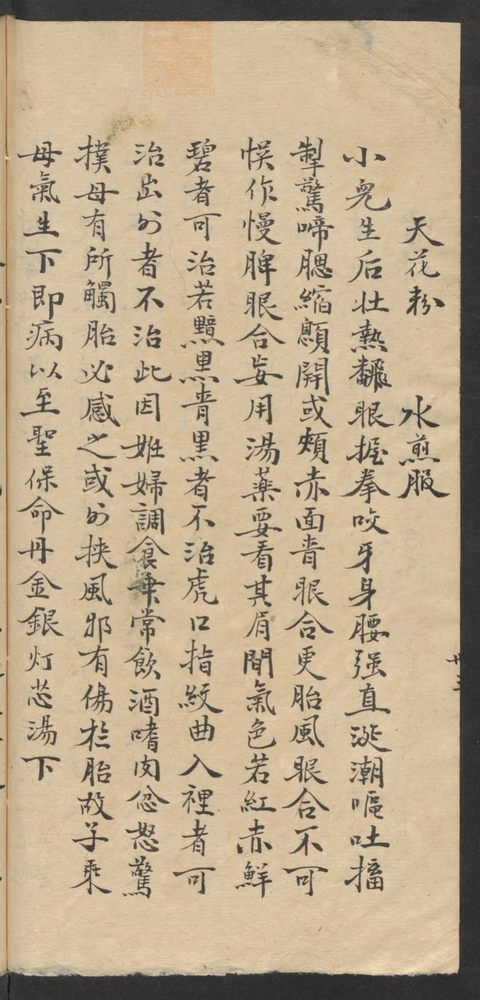 天花粉　水煎服
小兒生后壮熱飜眼握拳咬牙身腰强直涎潮嘔吐搐
掣驚啼腮縮顖開或頰赤面青眼合更胎風眼合不可
悮作慢脾眼合妄用湯藥要看其眉間氣色若紅赤鮮
碧者可治若黯黑青黒者不治虎口指紋曲入裡者可
治出外者不治此因姙婦調食乖常飲酒嗜肉忿怒驚
撲母有所觸胎必感之或外挟風邪有傷於胎故子乘
母氣生下即病以至聖保命丹金銀灯芯湯下
廿三